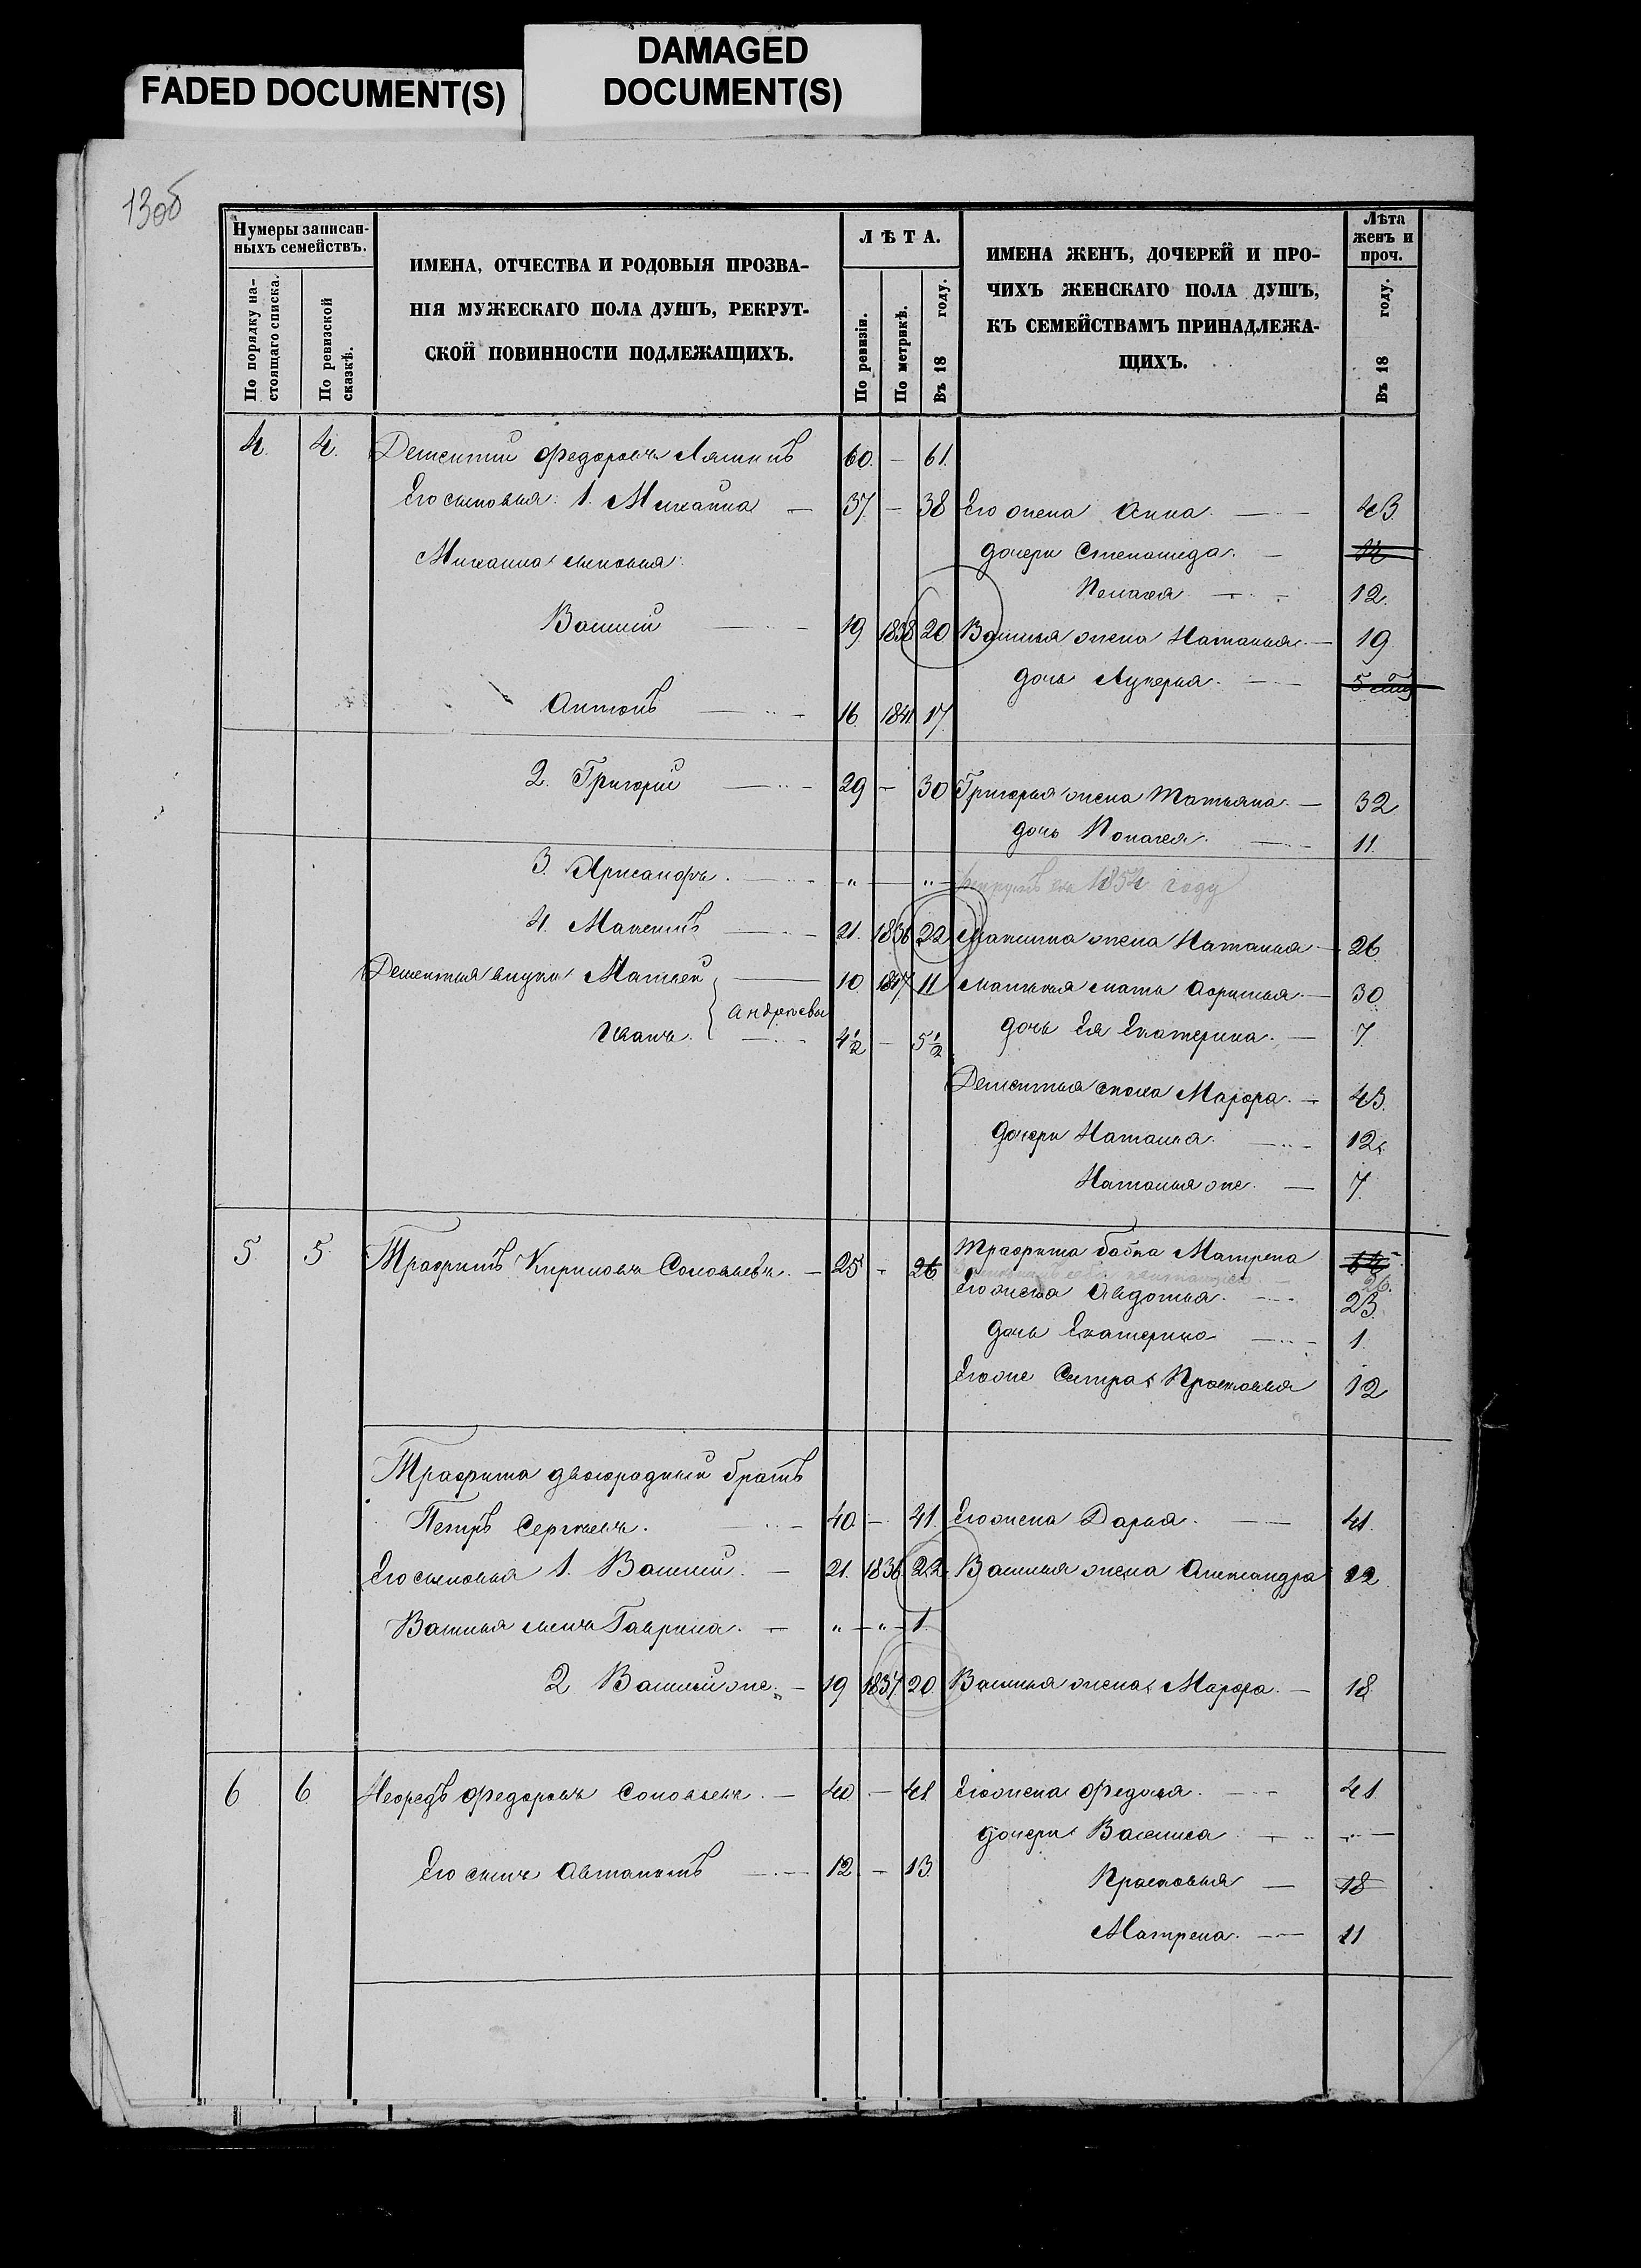 FADED DOCUMENT(S)
DAMAGED
DOCUMENT(S)
13об
Нумеры записан-
ныхъ семействъ.
По порядку на-
стоящаго списка.
По ревизской
сказкѣ.
ИМЕНА, ОТЧЕСТВА И РОДОВЫЯ ПРОЗВА-
НІЯ МУЖЕСКАГО ПОЛА ДУШЪ, РЕКРУТ-
СКОЙ ПОВИННОСТИ ПОДЛЕЖАЩИХЪ.
ЛѢТА.
По ревизіи.
По метрикѣ.
Въ 18 году.
ИМЕНА ЖЕНЪ, ДОЧЕРЕЙ И ПРО-
ЧИХЪ ЖЕНСКАГО ПОЛА ДУШЪ,
КЪ СЕМЕЙСТВАМЪ ПРИНАДЛЕЖА-
ЩИХЪ.
Лѣта
женъ и
проч.
Въ 18 году.
4. 4. Дементий Федоровъ 60. — 61.
Его сыновья: 1. Михаила — 37. — 38 Его жена Анна. — 43.
Михаила сыновья: дочери Степанида. —
Пелагея — 12.
Василий — 19 1838 20 Василья жена Наталья — 19
дочь Лукерья. — 5 мѣс
Антонъ — 16. 1841 17.
2. Григорий — 29 — 30 Григорья жена Татьяна. — 32
дочь Пелагея. — 11.
3. Хрисанфъ. — „ — „ — 1854 году
4. Максимъ — 21. 1836 22 Максима жена Наталья — 26.
Дементья внуки Матвей — 10. 1847 11 Матвея мать Афимья. — 30.
Андреевы
Иванъ. — 4½ — 5½ дочь Ея Екатерина. — 7.
Дементья сноха Марфа. — 43.
дочери Наталья. — 12.
Наталья же. — 7.
5. 5. Трафимъ Кириловъ Соловьевъ. — 25 — 26 Трафима бабка Матрена
26.
Его жена Авдотья. — 23.
дочь Екатерина — 1.
Его же Сестра Прасковья 12
Трафима двоюродный братъ
Петръ Сергеевъ. — 40. — 41. Его жена Дарья. — 41.
Его сыновья 1. Василий. — 21. 1836 22. Василья жена Александра 22
Василья сынъ Гаврила. — „ — „ — 1.
2 Василий же. — 19 1837 20 Василья жена Марфа. — 18
6. 6. Федоровъ Соловьевъ. — 40. — 41. Его жена Федосья. — 41.
дочери Василиса. —
Его сынъ Автамонъ — 12. — 13. Прасковья — 18
Матрена. — 11